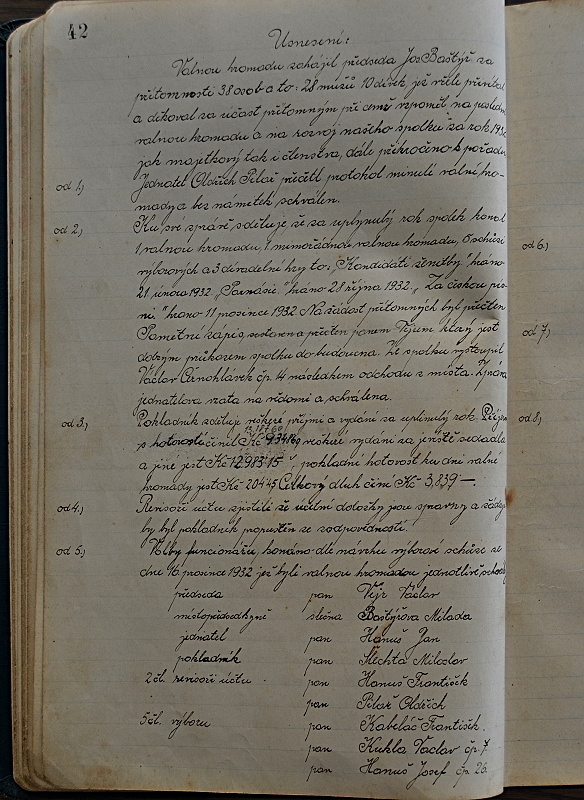 42
Usnesení:
Valnou hromadu zahájil předseda Jos. Baštýř za
přítomnosti 38 osob a to: 28 mužů 10 dívek, jež vřele přivítal
a děkoval za účast přítomným při čemž vzpoměl na poslední
valnou hromadu a na rozvoj našeho spolku za rok 193
jak majetkový tak i členstva, dále překročeno k pořadu
od 1,) Jednatel Oldřich Pilař přečtl protokol minulé valné hro-
mady a bez námitek schválen.
od 2,) Ku své zprávě sděluje, že za uplynulý rok spolek konal
1 valnou hromadu, 1 mimořádnou valnou hromadu, 6 schůzí
výborových a 3 divadelní hry to: „Kandidáti ženitby" hráno
21 února 1932. hráno 28 října 1932. „Za českou pí-
ní" hráno 11 prosince 1932. Na žádost přítomných byl přečten
Pamětní zápis, sestaven a přečten panem který jest
dobrým průkazem spolku do budoucna. Ze spolku vystoupil
Václav Černohlávek čp. 4 následkem odchodu z místa. Zpráva
jednatelova vzata na vědomí a schválena.
od 3,) Pokladník sděluje veškeré příjmi a vydání za uplinulý rok. Příjem
s hotovostí činil Kč veškeré vydání za jeviště
a jiné jest Kč 12.983·15 pokladní hotovost ku dni valné
hromady jest Kč 204·45 Celkový dluh činí Kč 3.239 —.
od 4,) Revisoři účtu zjistili že účetní doložky jsou správny a žádají
by byl pokladník popuštěn ze zodpovědnosti.
od 5,) Volby funcionářů, konáno dle návrhu výborové schůze ze
dne 16. prosince 1932 jež byli valnou hromadou jednotlivě
předseda pan Vejr Václav
místopředsedkyně slečna Baštýřova Milada
jednatel pan Hanuš Jan
pokladník pan Šlechta Miloslav
2 čl. revisoři účtu pan Hanuš František
pan Pilař Oldřich
5 čl. výboru pan Kabeláč František.
pan Kukla Václav čp. 7
pan Hanuš Josef čp. 26.
od 6,)
od 7,)
od 8,)